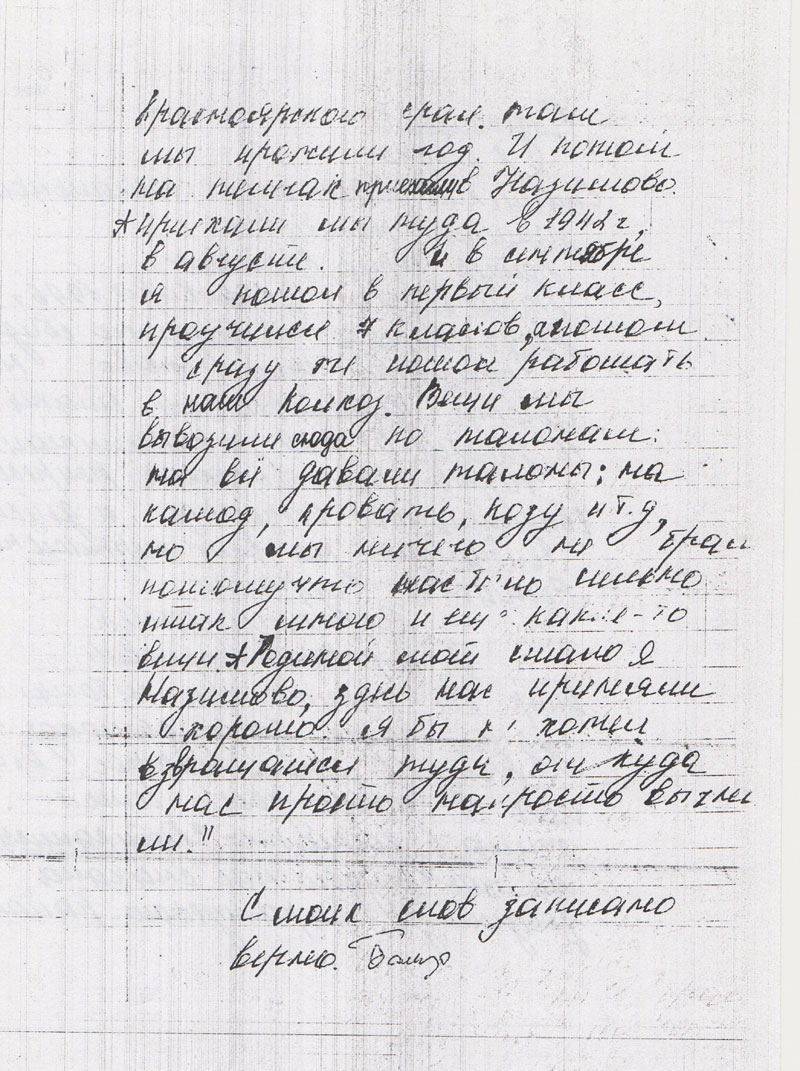 Красноярского края. там
мы прожили год. И потом
на телегах приехали в Назимово.
Приехали мы туда в 1942 г,
в августе. И в сентябре
я пошол в первый класс,
проучился 7 классов, а потом
сразу же пошол работать
в наш колхоз. Вещи мы
вывозили сюда по талонам:
на всё давали талоны; на
камод, кровать, козу и т.д,
но мы ничего не брали
потомучто нас было сильно
итак много и ещё какие-то
вещи. Родиной моей стало
Назимово, здесь нас приняли
хорошо. Я бы не хотел
возвращатся туда, откуда
нас просто напросто выгна
ли."
С моих слов записано
верно.